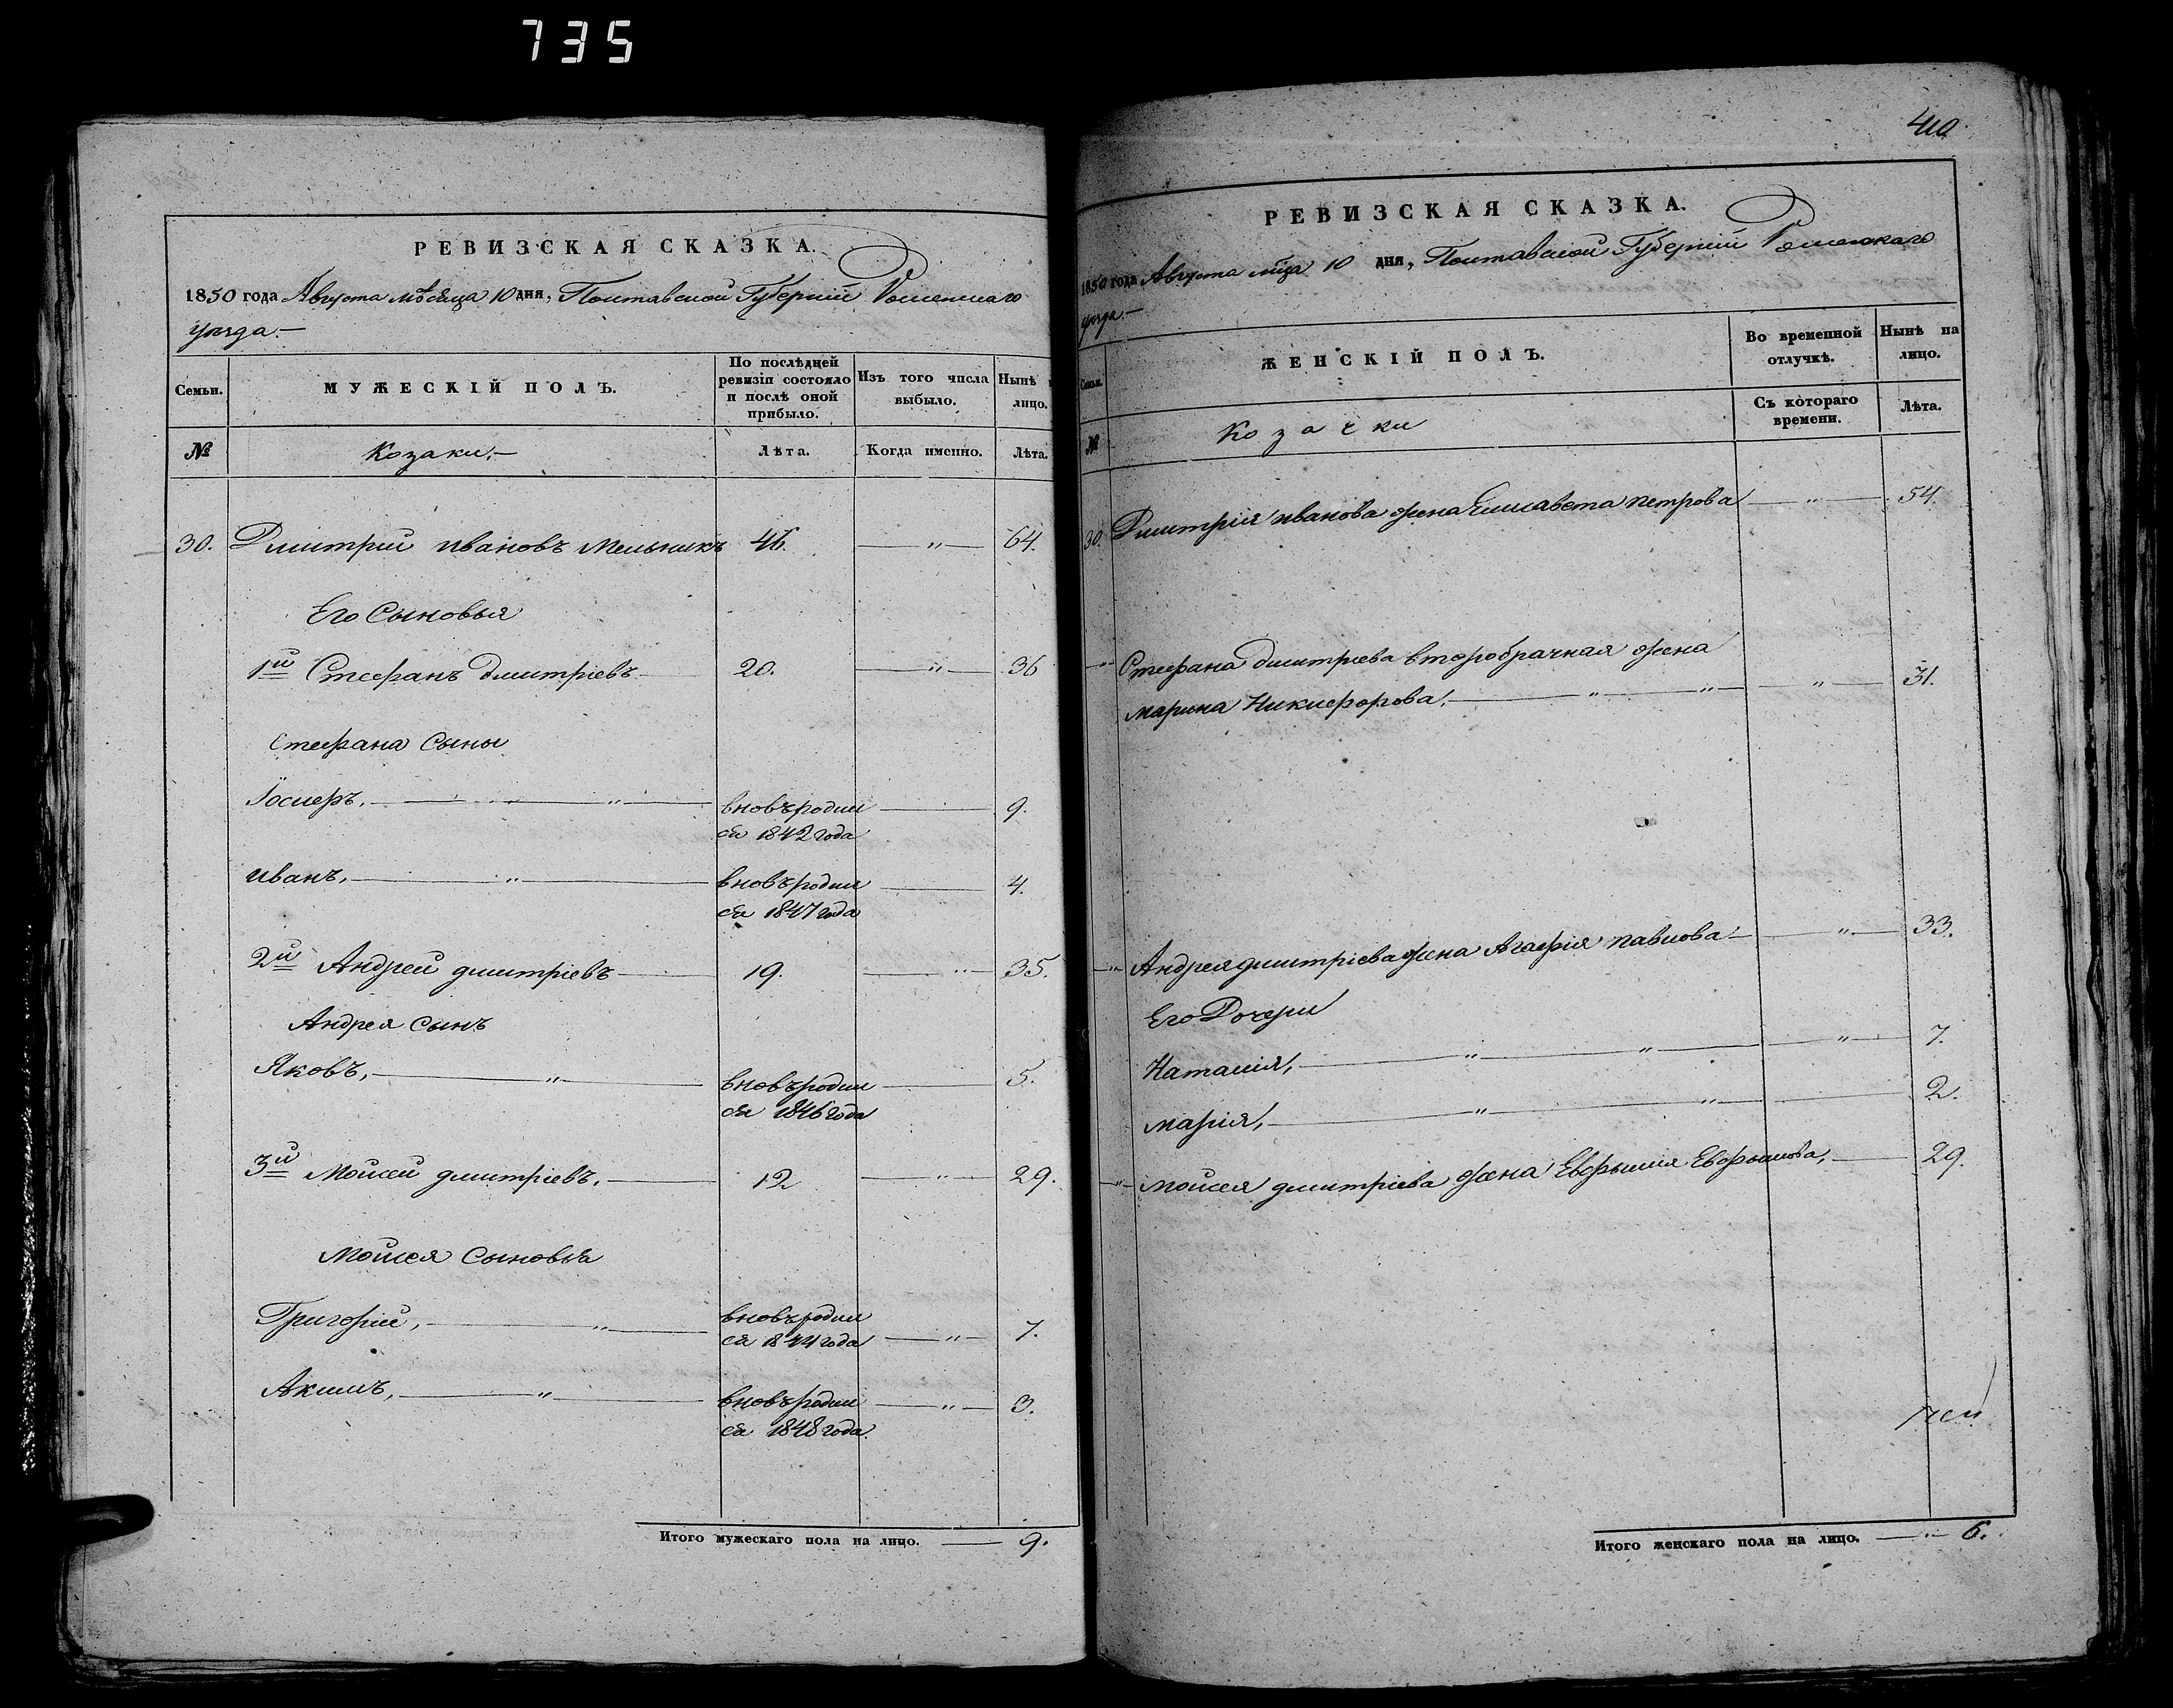 735
РЕВИЗСКАЯ СКАЗКА.
1850 года Августа мѣсяца 10 дня, Полтавской Губерніи Роменскаго
уѣзда.—
Семьи.
МУЖЕСКІЙ ПОЛЪ.
По послѣдней ревизіи состояло и послѣ оной прибыло.
Изъ того числа выбыло.
Нынѣ
лицо.
№
Козаки.—
Лѣта.
Когда именно.
Лѣта.
30. Дмитрій Ивановъ Мельникъ 46. — " — 64.
Его Сыновья
1й Стефанъ Дмитріевъ — 20. — " — 36
Стефана Сыны
Іосифъ, — " — " — вновь родил
ся 1842 года — 9.
Иванъ, — " — вновь родил
ся 1847 года — 4.
2й Андрей Дмитріевъ — 19. — " — 35.
Андрея Сынъ
Яковъ, — " — вновь родил
ся 1846 года — 5.
3й Мойсей Дмитріевъ. — 12 — " — 29.
Мойсея Сыновья
Григорій, — " — вновь родил
ся 1844 года — " — 7.
Акимъ, — " — вновь родил
ся 1848 года. — " — 3.
Итого мужескаго пола на лицо. — 9.
410
РЕВИЗСКАЯ СКАЗКА.
1850 года Августа мца 10 дня, Полтавской Губерніи Роменскаго
уѣзда.—
Семьи.
ЖЕНСКІЙ ПОЛЪ.
Во временной отлучкѣ.
Нынѣ на лицо.
№
Козачки
Съ котораго времени.
Лѣта.
30. Дмитрія Иванова жена Елисавета Петрова — " — 54.
" Стефана Дмитріева второбрачная жена
Марина Никифорова, — " — " — " — 31.
" Андрея Дмитріева жена Агафія Павлова — " — 33.
Его Дочери
Наталія, — " — " — " — 7.
Марія, — " — " — 2.
" Мойсея Дмитріева жена Евфимія Евфимова, — 29.
Итого женскаго пола на лицо. — " — 6.